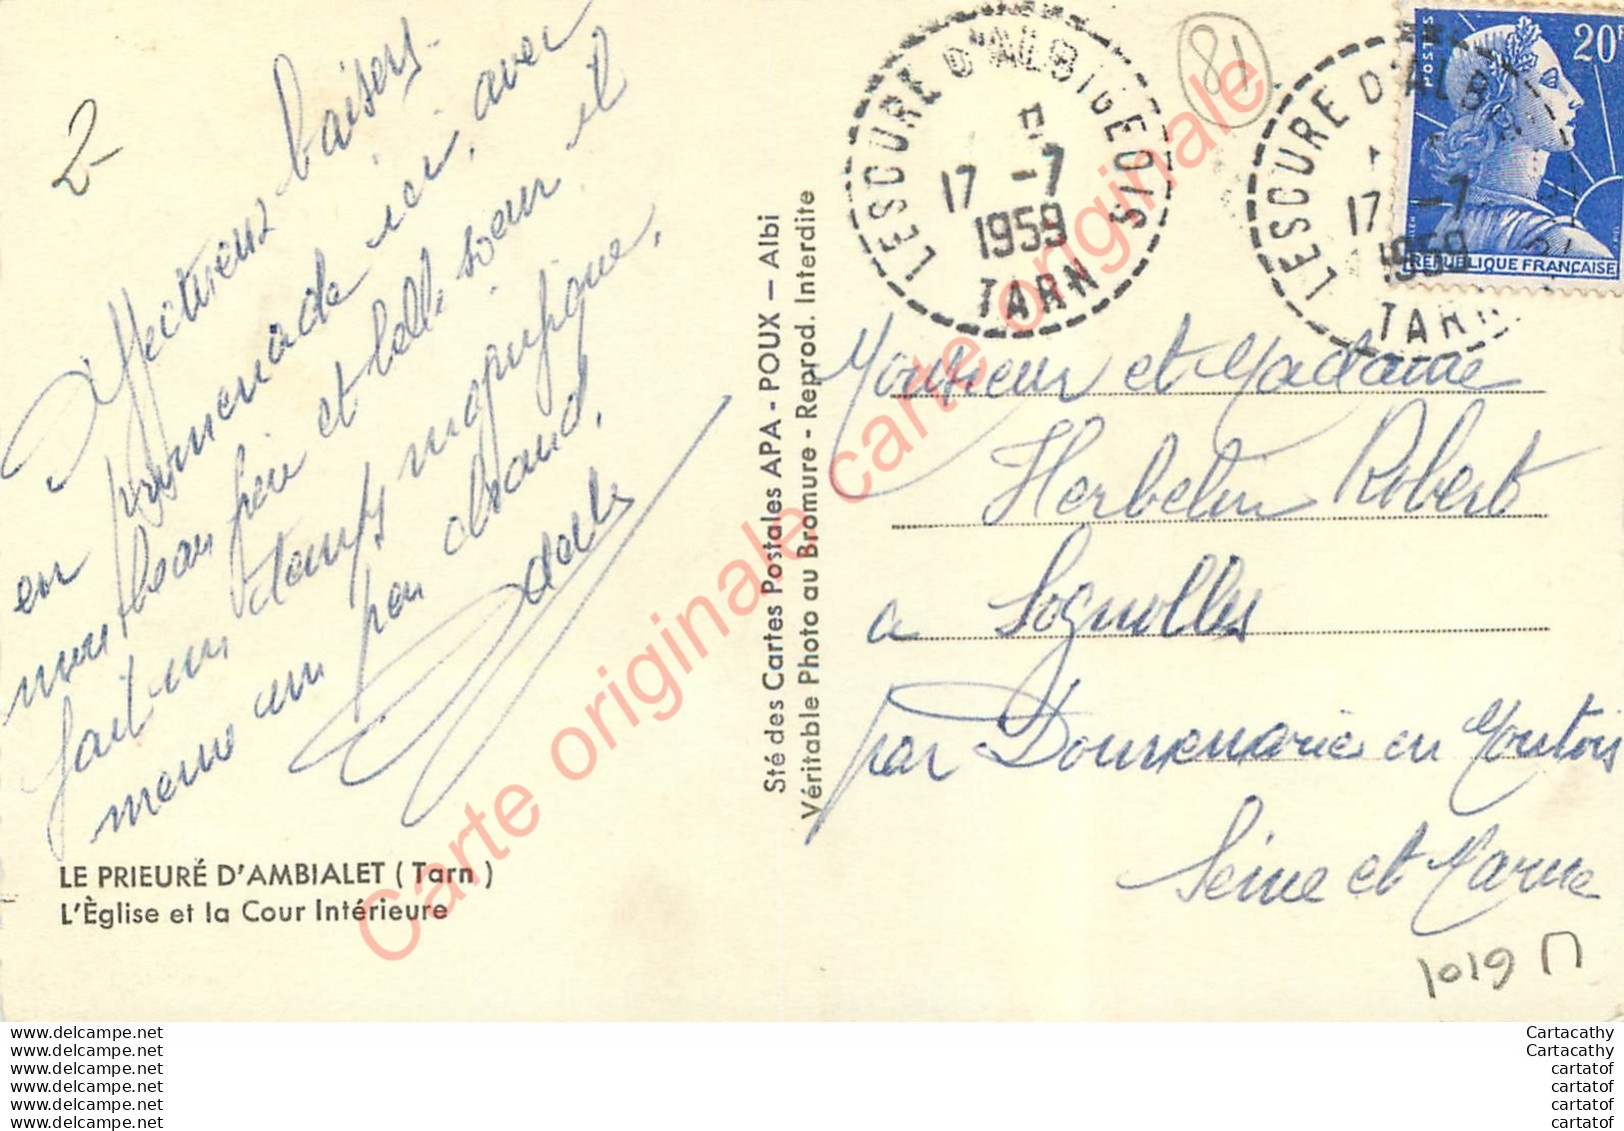 2-
Affectueux baisers.
en promenade ici, avec
mon beau père et belle soeur il
fait un temps magnifique,
meme un peu chaud.
LE PRIEURÉ D'AMBIALET ( Tarn )
L'Èglise et la Cour Intérieure
Sté des Cartes Postales APA - POUX – Albi
Véritable Photo au Bromure - Reprod. Interdite
81
LESCURE D'ALBIGEOIS
17 -7
1959
TARN
LESCURE D'ALB
17 -7
1959
TARN
POSTES
20F
REPUBLIQUE FRANÇAISE
Monsieur et Madame
Herbelin Robert
a Sognolles
par Donnemarie en Montois
Seine et Marne
1019 П
Carte originale carte originale
www.delcampe.net
www.delcampe.net
www.delcampe.net
www.delcampe.net
www.delcampe.net
www.delcampe.net
Cartacathy
Cartacathy
cartatof
cartatof
cartatof
cartatof